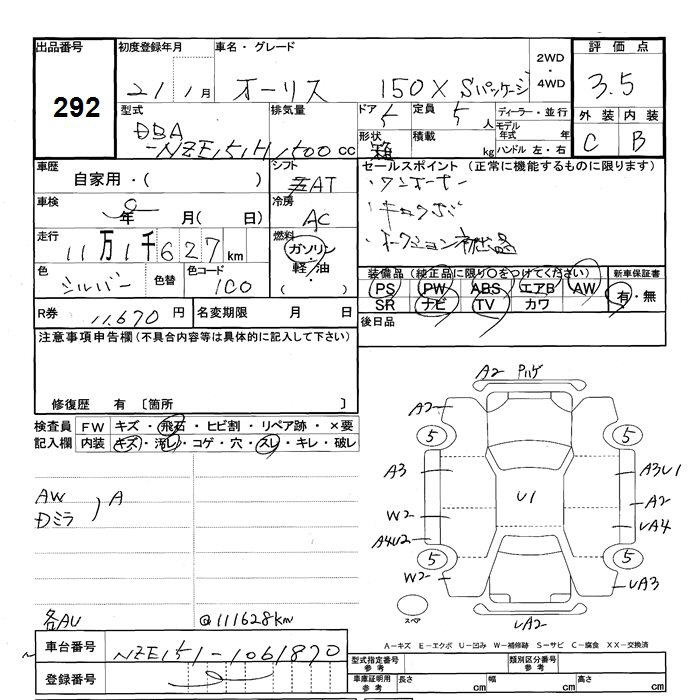 出品番号
292
初度登録年月
21 1月
車名・グレード
オーリス 150X Sパッケージ
2WD
・
4WD
評価点
3.5
外装 内装
C B
型式
DBA
-NZE151H
排気量
1500 cc
ドア 5
定員 5人
形状 箱
積載 kg
ディーラー・並行
モデル年式 年
ハンドル 左・右
車歴
自家用・( )
シフト
AT
セールスポイント (正常に機能するものに限ります)
・ワンオーナー
・オークション初出品
車検
年 月( 日)
冷房
AC
走行
11万1千627km
燃料
ガソリン
軽・油
( )
色
シルバー
色替
色コード
1C0
装備品 (純正品に限り○をつけてください)
PS PW ABS エアB AW
SR ナビ TV カワ
新車保証書
有・無
R券 11,670円
名変期限 月 日
後日品
注意事項申告欄 (不具合内容等は具体的に記入して下さい)
修復歴 有 〔箇所 〕
検査員記入欄
FW キズ・飛石・ヒビ割・リペア跡・×要
内装 キズ・汚レ・コゲ・穴・スレ・キレ・破レ
AW
Dミラ ) A
各AU
@111628km
A2 ハゲ
A2
5 5
A3 A3U1
U1
A2
W2 UA4
A4U2
5 5
W2 UA3
UA2
スペア
A−キズ E−エクボ U−凹み W−補修跡 S−サビ C−腐食 XX−交換済
車台番号 NZE151-1061870
登録番号
型式指定番号 参考
類別区分番号 参考
車庫証明用 参考
長さ cm 幅 cm 高さ cm